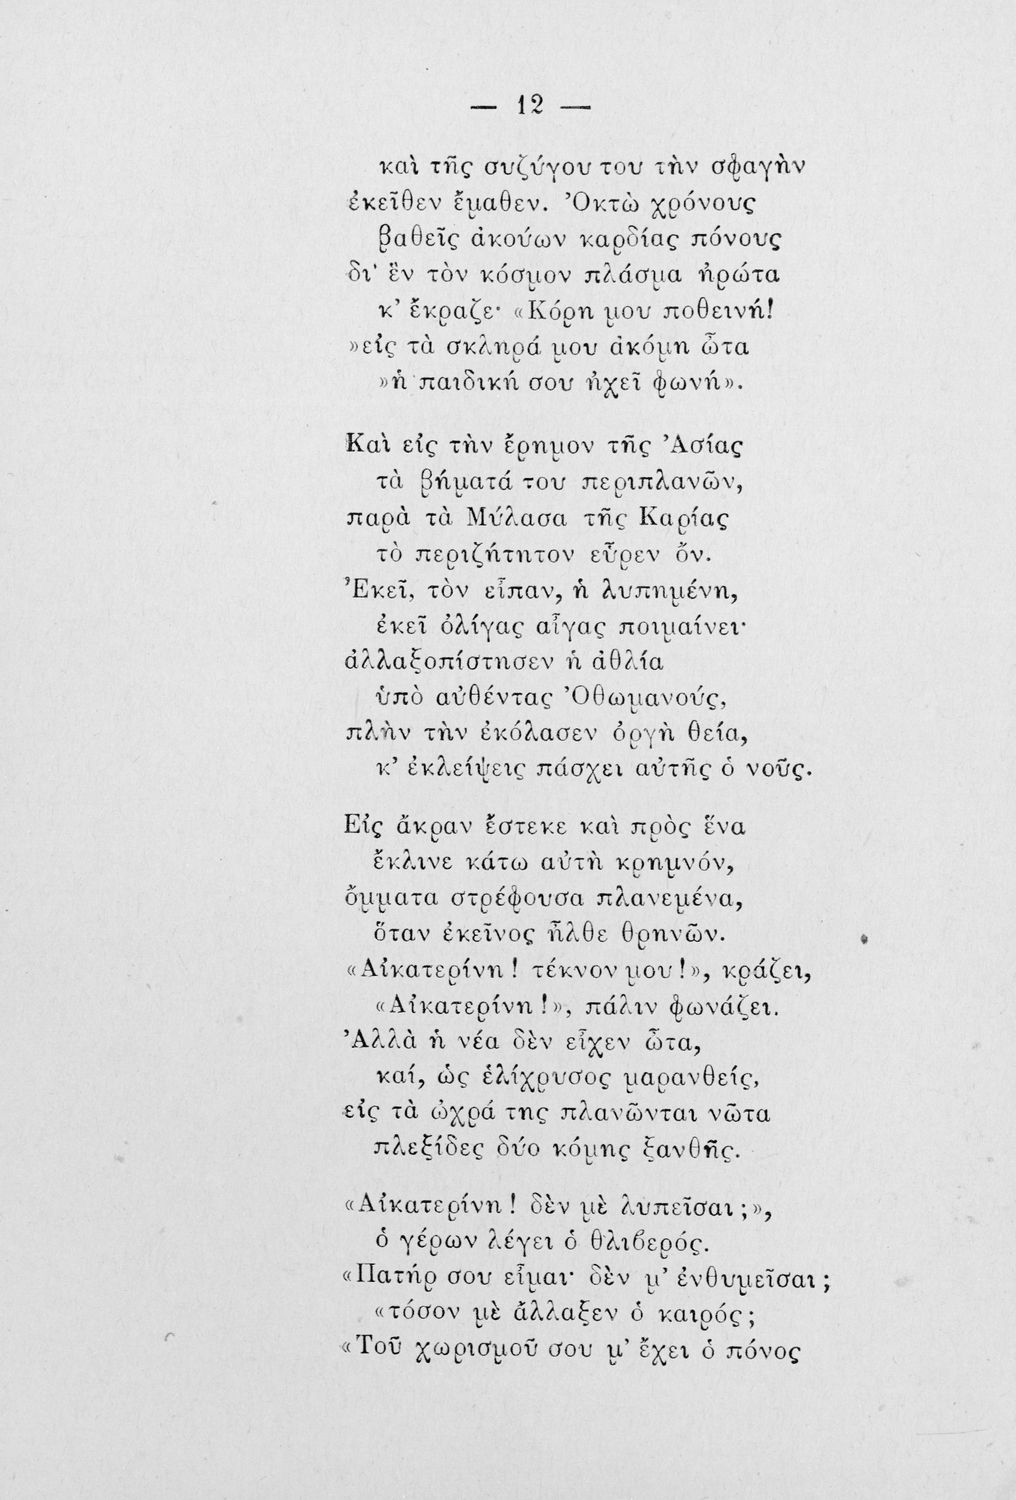 — 12 —
καὶ τῆς συζύγου του τὴν σφαγὴν
ἐκεῖθεν ἔμαθεν. Ὀκτὼ χρόνους
βαθεῖς ἀκούων καρδίας πόνους
δι' ἓν τὸν κόσμον πλάσμα ἠρώτα
κ' ἔκραζε· «Κόρη μου ποθεινή!
»εἰς τὰ σκληρά μου ἀκόμη ὦτα
»ἡ παιδική σου ἠχεῖ φωνή».
Καὶ εἰς τὴν ἔρημον τῆς Ἀσίας
τὰ βήματά του περιπλανῶν,
παρὰ τὰ Μύλασα τῆς Καρίας
τὸ περιζήτητον εὗρεν ὄν.
Ἐκεῖ, τὸν εἶπαν, ἡ λυπημένη,
ἐκεῖ ὀλίγας αἶγας ποιμαίνει·
ἀλλαξοπίστησεν ἡ ἀθλία
ὑπὸ αὐθέντας Ὀθωμανούς,
πλὴν τὴν ἐκόλασεν ὀργὴ θεία,
κ' ἐκλείψεις πάσχει αὐτῆς ὁ νοῦς.
Εἰς ἄκραν ἔστεκε καὶ πρὸς ἕνα
ἔκλινε κάτω αὐτὴ κρημνόν,
ὄμματα στρέφουσα πλανεμένα,
ὅταν ἐκεῖνος ἦλθε θρηνῶν.
«Αἰκατερίνη! τέκνον μου!», κράζει,
«Αἰκατερίνη!», πάλιν φωνάζει.
Ἀλλὰ ἡ νέα δὲν εἶχεν ὦτα,
καί, ὡς ἑλίχρυσος μαρανθείς,
εἰς τὰ ὠχρά της πλανῶνται νῶτα
πλεξίδες δύο κόμης ξανθῆς.
«Αἰκατερίνη! δὲν μὲ λυπεῖσαι;»,
ὁ γέρων λέγει ὁ θλιβερός.
«Πατήρ σου εἶμαι· δὲν μ' ἐνθυμεῖσαι;
«τόσον μὲ ἄλλαξεν ὁ καιρός;
«Τοῦ χωρισμοῦ σου μ' ἔχει ὁ πόνος